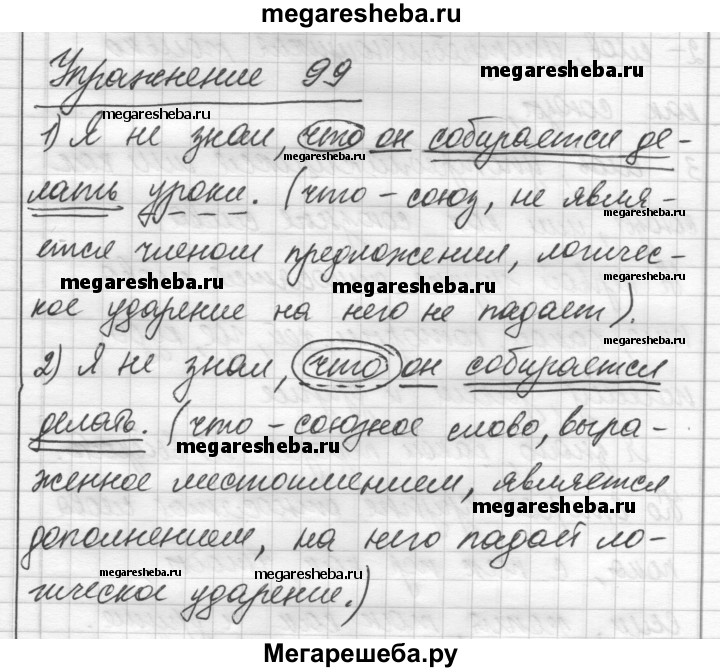 megaresheba.ru
Упражнение 99
megaresheba.ru
megaresheba.ru
1) Я не знал, что он собирается де-
megaresheba.ru
лать уроки. (что - союз, не явля-
megaresheba.ru
ется членом предложения, логичес-
megaresheba.ru
megaresheba.ru
megaresheba.ru
кое ударение на него не падает).
2) Я не знал, что он собирается
делать. (что - союзное слово, выра-
megaresheba.ru
женное местоимением, является
megaresheba.ru
дополнением, на него падает ло-
megaresheba.ru
megaresheba.ru
гическое ударение.)
Мегарешеба.ру